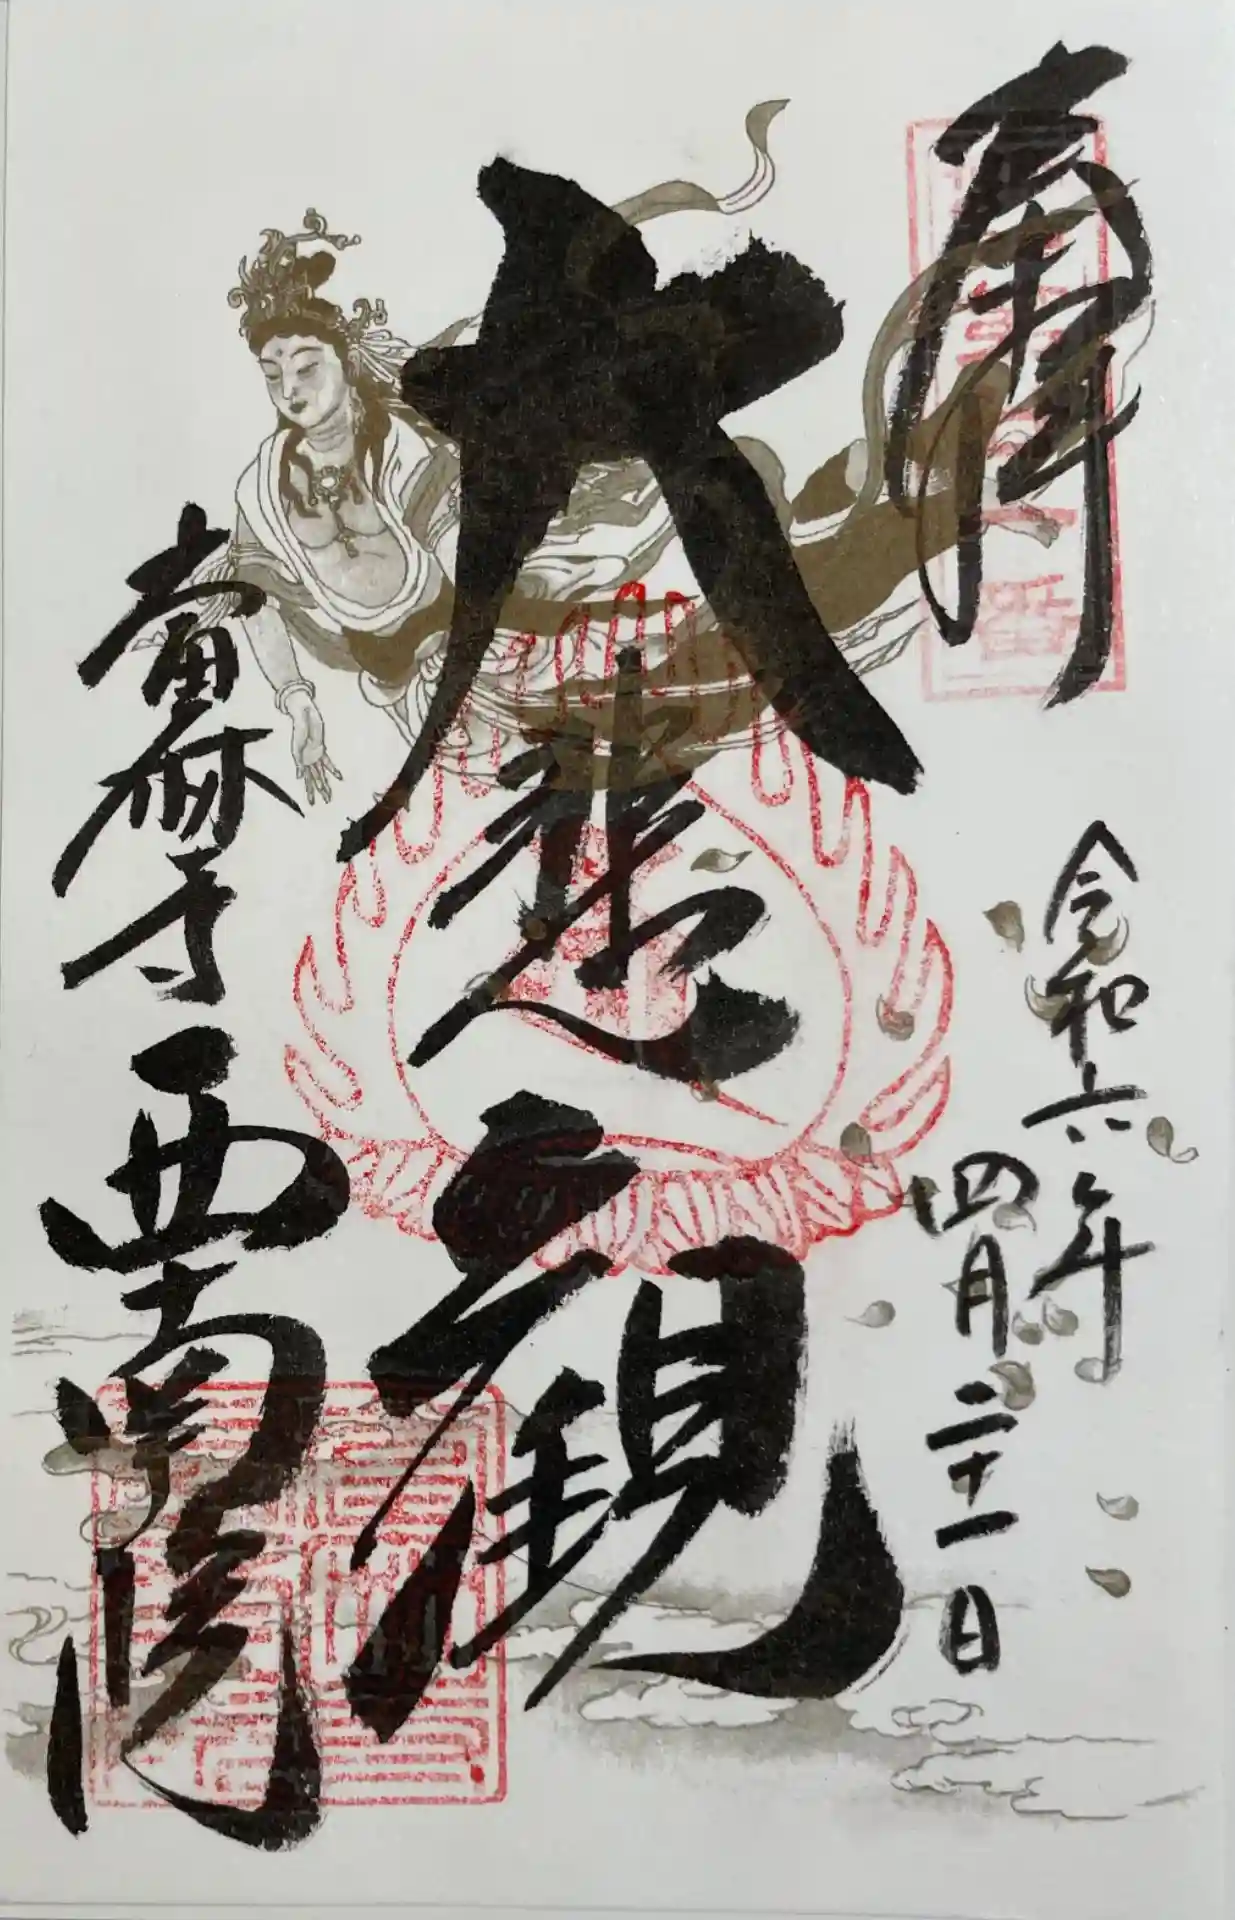 奉拝
令和六年
四月二十一日
大悲観
當麻寺 西南院